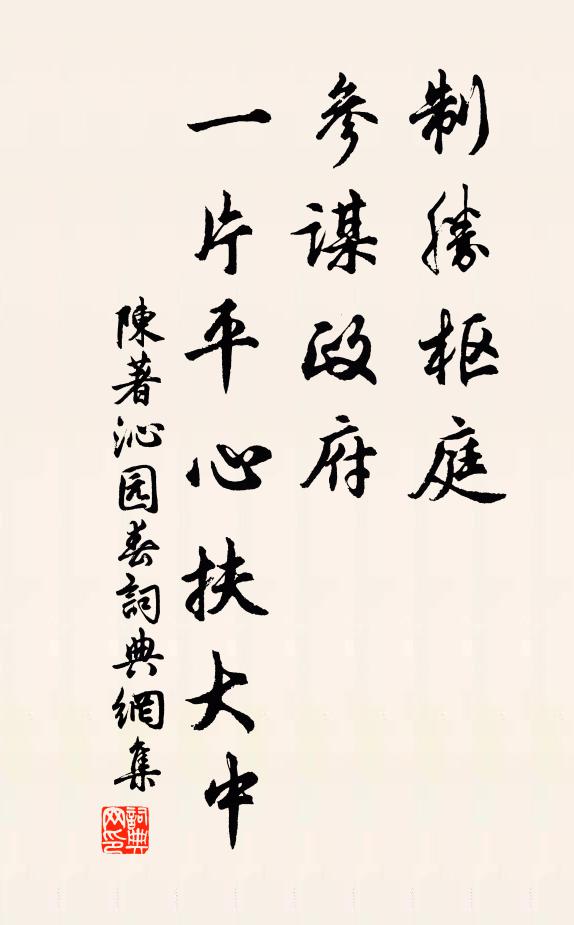 制勝枢庭
參謀政府
一片平心扶大中
陳著沁园春詞典網集
詞典网印